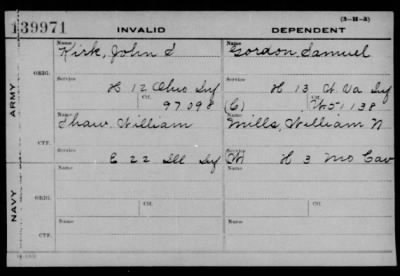 (3-H-3)
139971 INVALID DEPENDENT
ARMY
ORIG.
Name
Kirk, John S
Name
Gordon, Samuel
Service
H 12 Ohio Inf
Service
H 13 W. Va Inf
Ctf.
97098
(C)
Ctf.
138
CTF.
Name
Shaw William
Name
Mills, William N
Service
E 22 Ill Inf
Service
(W) H 3 Mo Cav
NAVY
ORIG.
Name
Name
Service
Ctf.
Service
Ctf.
CTF.
Name
Name
Service
Service